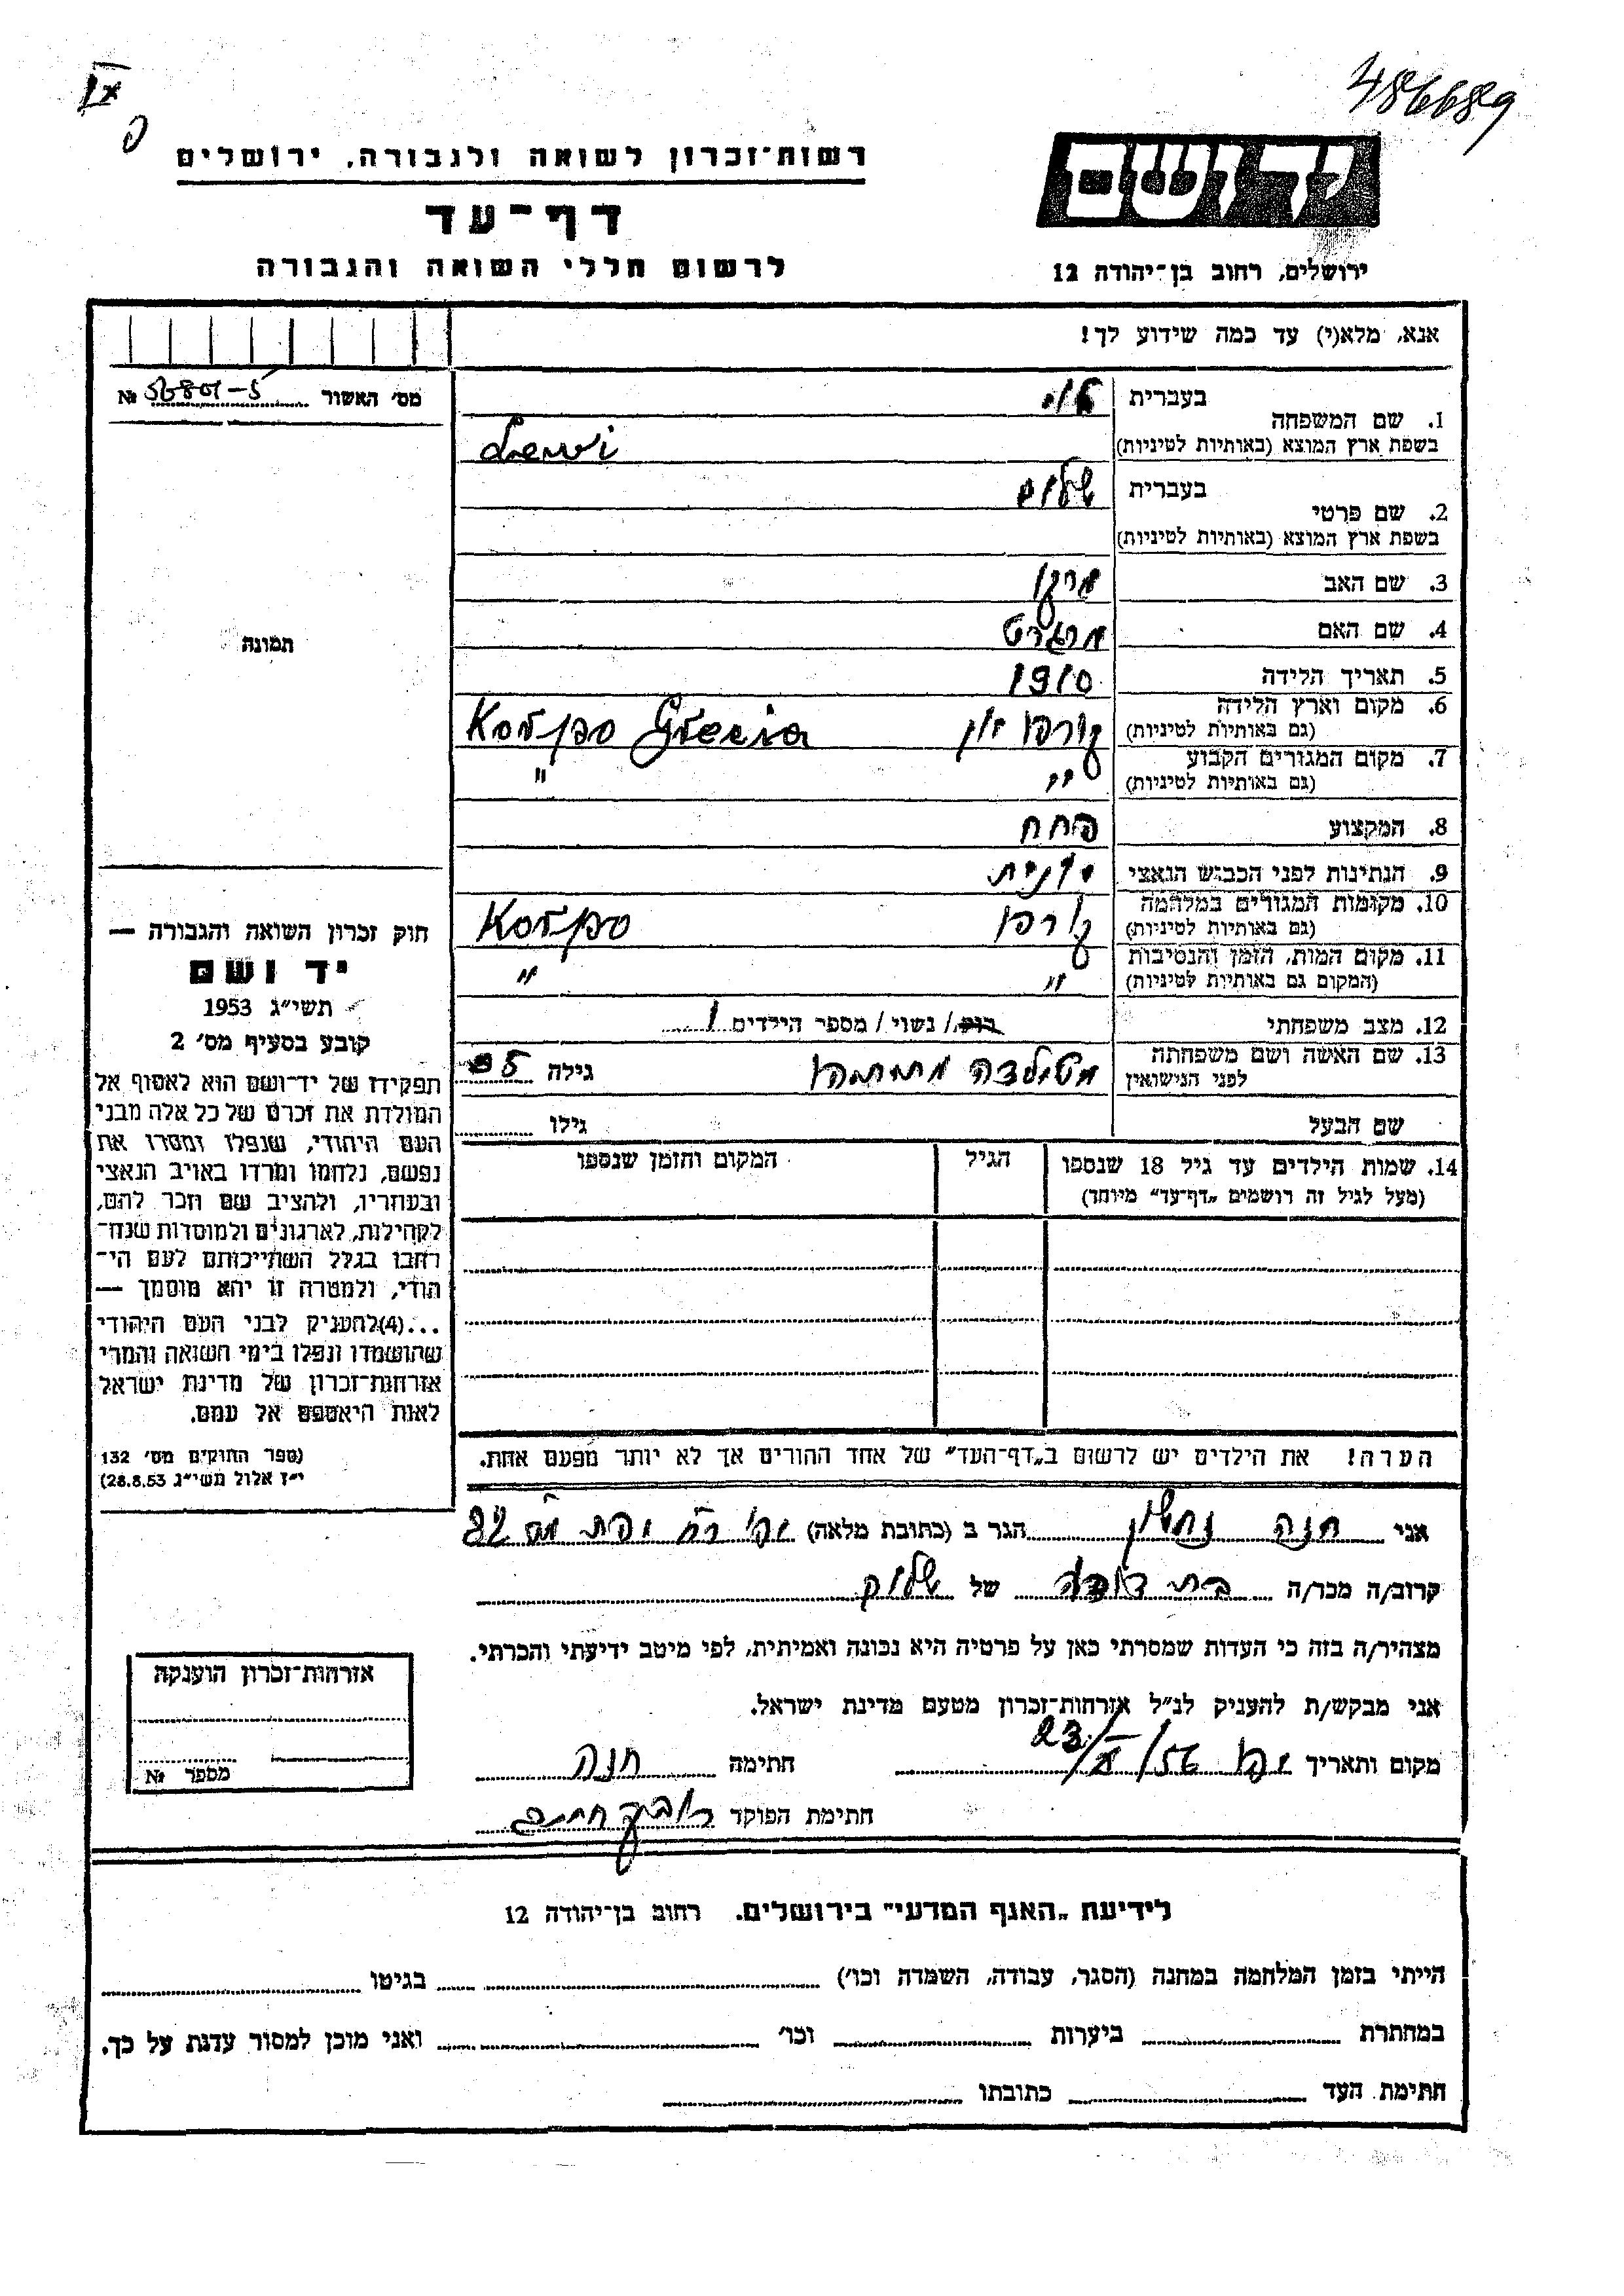 486689
IX
רשות־זכרון לשואה ולגבורה, ירושלים
דף־עד
לרשום חללי השואה והגבורה
יד ושם
ירושלים, רחוב בן־יהודה 12
אנא, מלא(י) עד כמה שידוע לך!
מס׳ האשור № 
1. שם המשפחה בעברית לוי
בשפת ארץ המוצא (באותיות לטיניות) Lewi
2. שם פרטי בעברית שלום
בשפת ארץ המוצא (באותיות לטיניות)
3. שם האב מרקו
4. שם האם מרגרט
5. תאריך הלידה 1910
6. מקום וארץ הלידה (גם באותיות לטיניות) קורפו יון Korfo Grecia
7. מקום המגורים הקבוע (גם באותיות לטיניות) " "
8. המקצוע פחח
9. הנתינות לפני הכבוש הנאצי יונית
10. מקומות המגורים במלחמה (גם באותיות לטיניות) קורפו Korfo
11. מקום המות, הזמן והנסיבות (המקום גם באותיות לטיניות) " "
12. מצב משפחתי רוק/ נשוי/ מספר הילדים 1
13. שם האשה ושם משפחתה לפני הנישואין מטילדה גילה
שם הבעל גילו
14. שמות הילדים עד גיל 18 שנספו הגיל המקום והזמן שנספו
(מעל לגיל זה רושמים „דף־עד” מיוחד)
הערה! את הילדים יש לרשום ב„דף־העד” של אחד ההורים אך לא יותר מפעם אחת.
תמונה
חוק זכרון השואה והגבורה —
יד ושם
תשי״ג 1953
קובע בסעיף מס׳ 2
תפקידו של יד־ושם הוא לאסוף אל
המולדת את זכרם של כל אלה מבני
העם היהודי, שנפלו ומסרו את
נפשם, נלחמו ומרדו באויב הנאצי
ובעוזריו, ולהציב שם וזכר להם,
לקהילות, לארגונים ולמוסדות שנח־
רבו בגלל השתייכותם לעם הי־
הודי, ולמטרה זו יהא מוסמך —
...(4)להעניק לבני העם היהודי
שהושמדו ונפלו בימי השואה והמרי
אזרחות־זכרון של מדינת ישראל
לאות היאספם אל עמם.
(ספר החוקים מס׳ 132
י״ז אלול תשי״ג 28.8.53)
אני חנה נחשון הגר ב (כתובת מלאה) יפו רח יפת מס 82
קרוב/ה מכר/ה בת דודה של שלום
מצהיר/ה בזה כי העדות שמסרתי כאן על פרטיה היא נכונה ואמיתית, לפי מיטב ידיעתי והכרתי.
אני מבקש/ת להעניק לנ״ל אזרחות־זכרון מטעם מדינת ישראל.
מקום ותאריך יפו 23/X/56 חתימה חנה
חתימת הפוקד
אזרחות־זכרון הוענקה
מספר №
לידיעת „האגף המדעי” בירושלים, רחוב בן־יהודה 12
הייתי בזמן המלחמה במחנה (הסגר, עבודה, השמדה וכו׳) בגיטו
במחתרת ביערות וכו׳ ואני מוכן למסור עדות על כך.
חתימת העד כתובתו